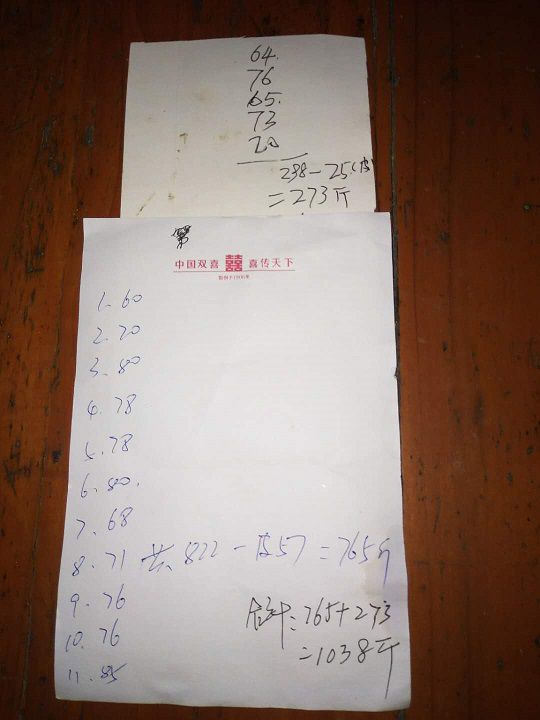 64.
76
65.
73
20
298-25(皮)
=273斤
中国双喜 囍 喜传天下
1. 60
2. 70
3. 80
4. 78
5. 78
6. 80.
7. 68
8. 71 共822-皮57=765斤
9. 76
合计:765+273
10. 76
=1038斤
11. 85